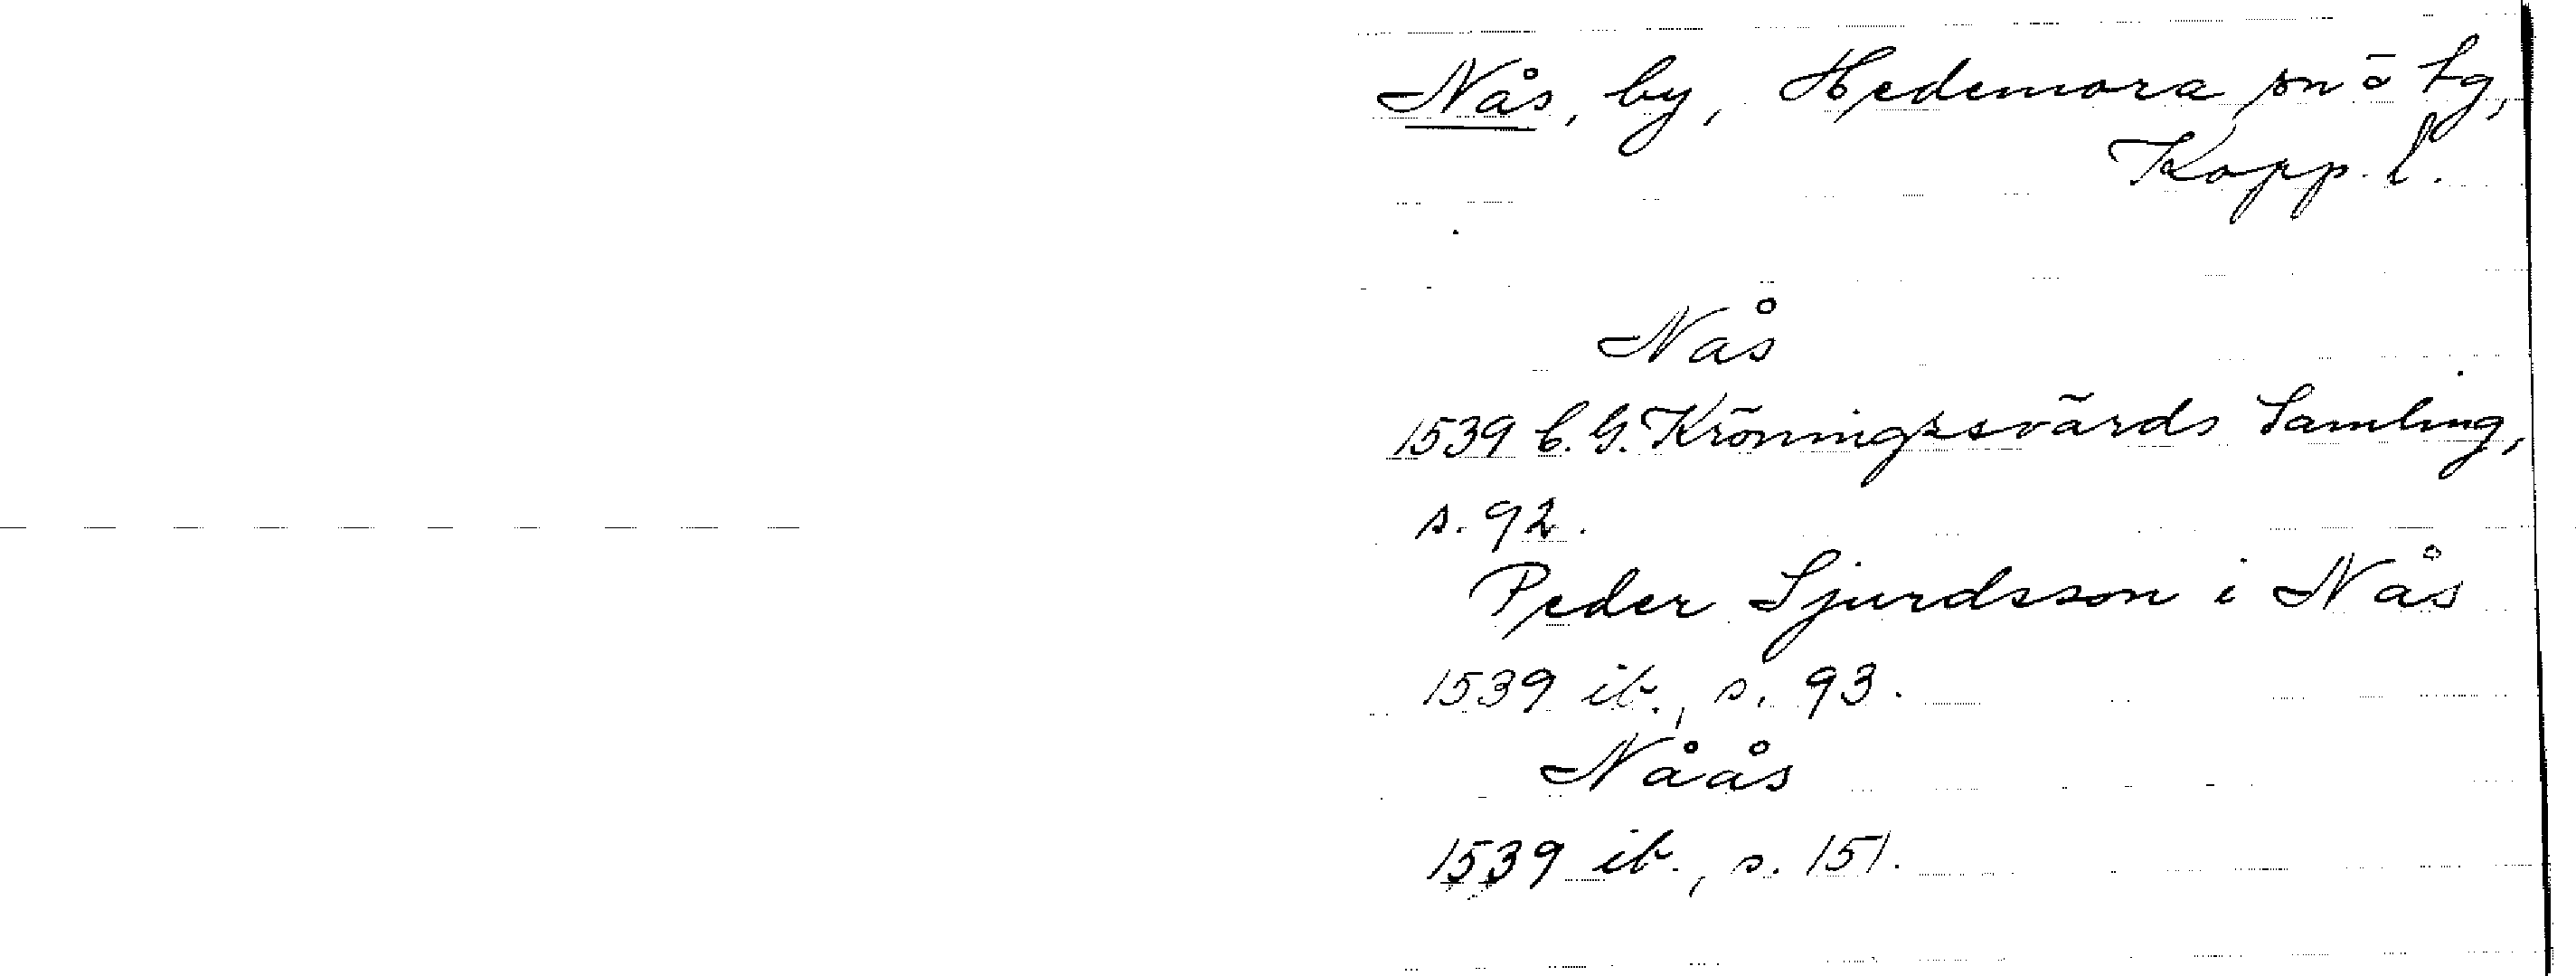 Nås, by, Hedemora sn o tg,
Kopp. l.
Nås
1539 C. G. Kröningssvärds Samling,
s. 92.
Peder Sjurdsson i Nås
1539 ib., s. 93.
Nåås
1539 ib., s. 151.